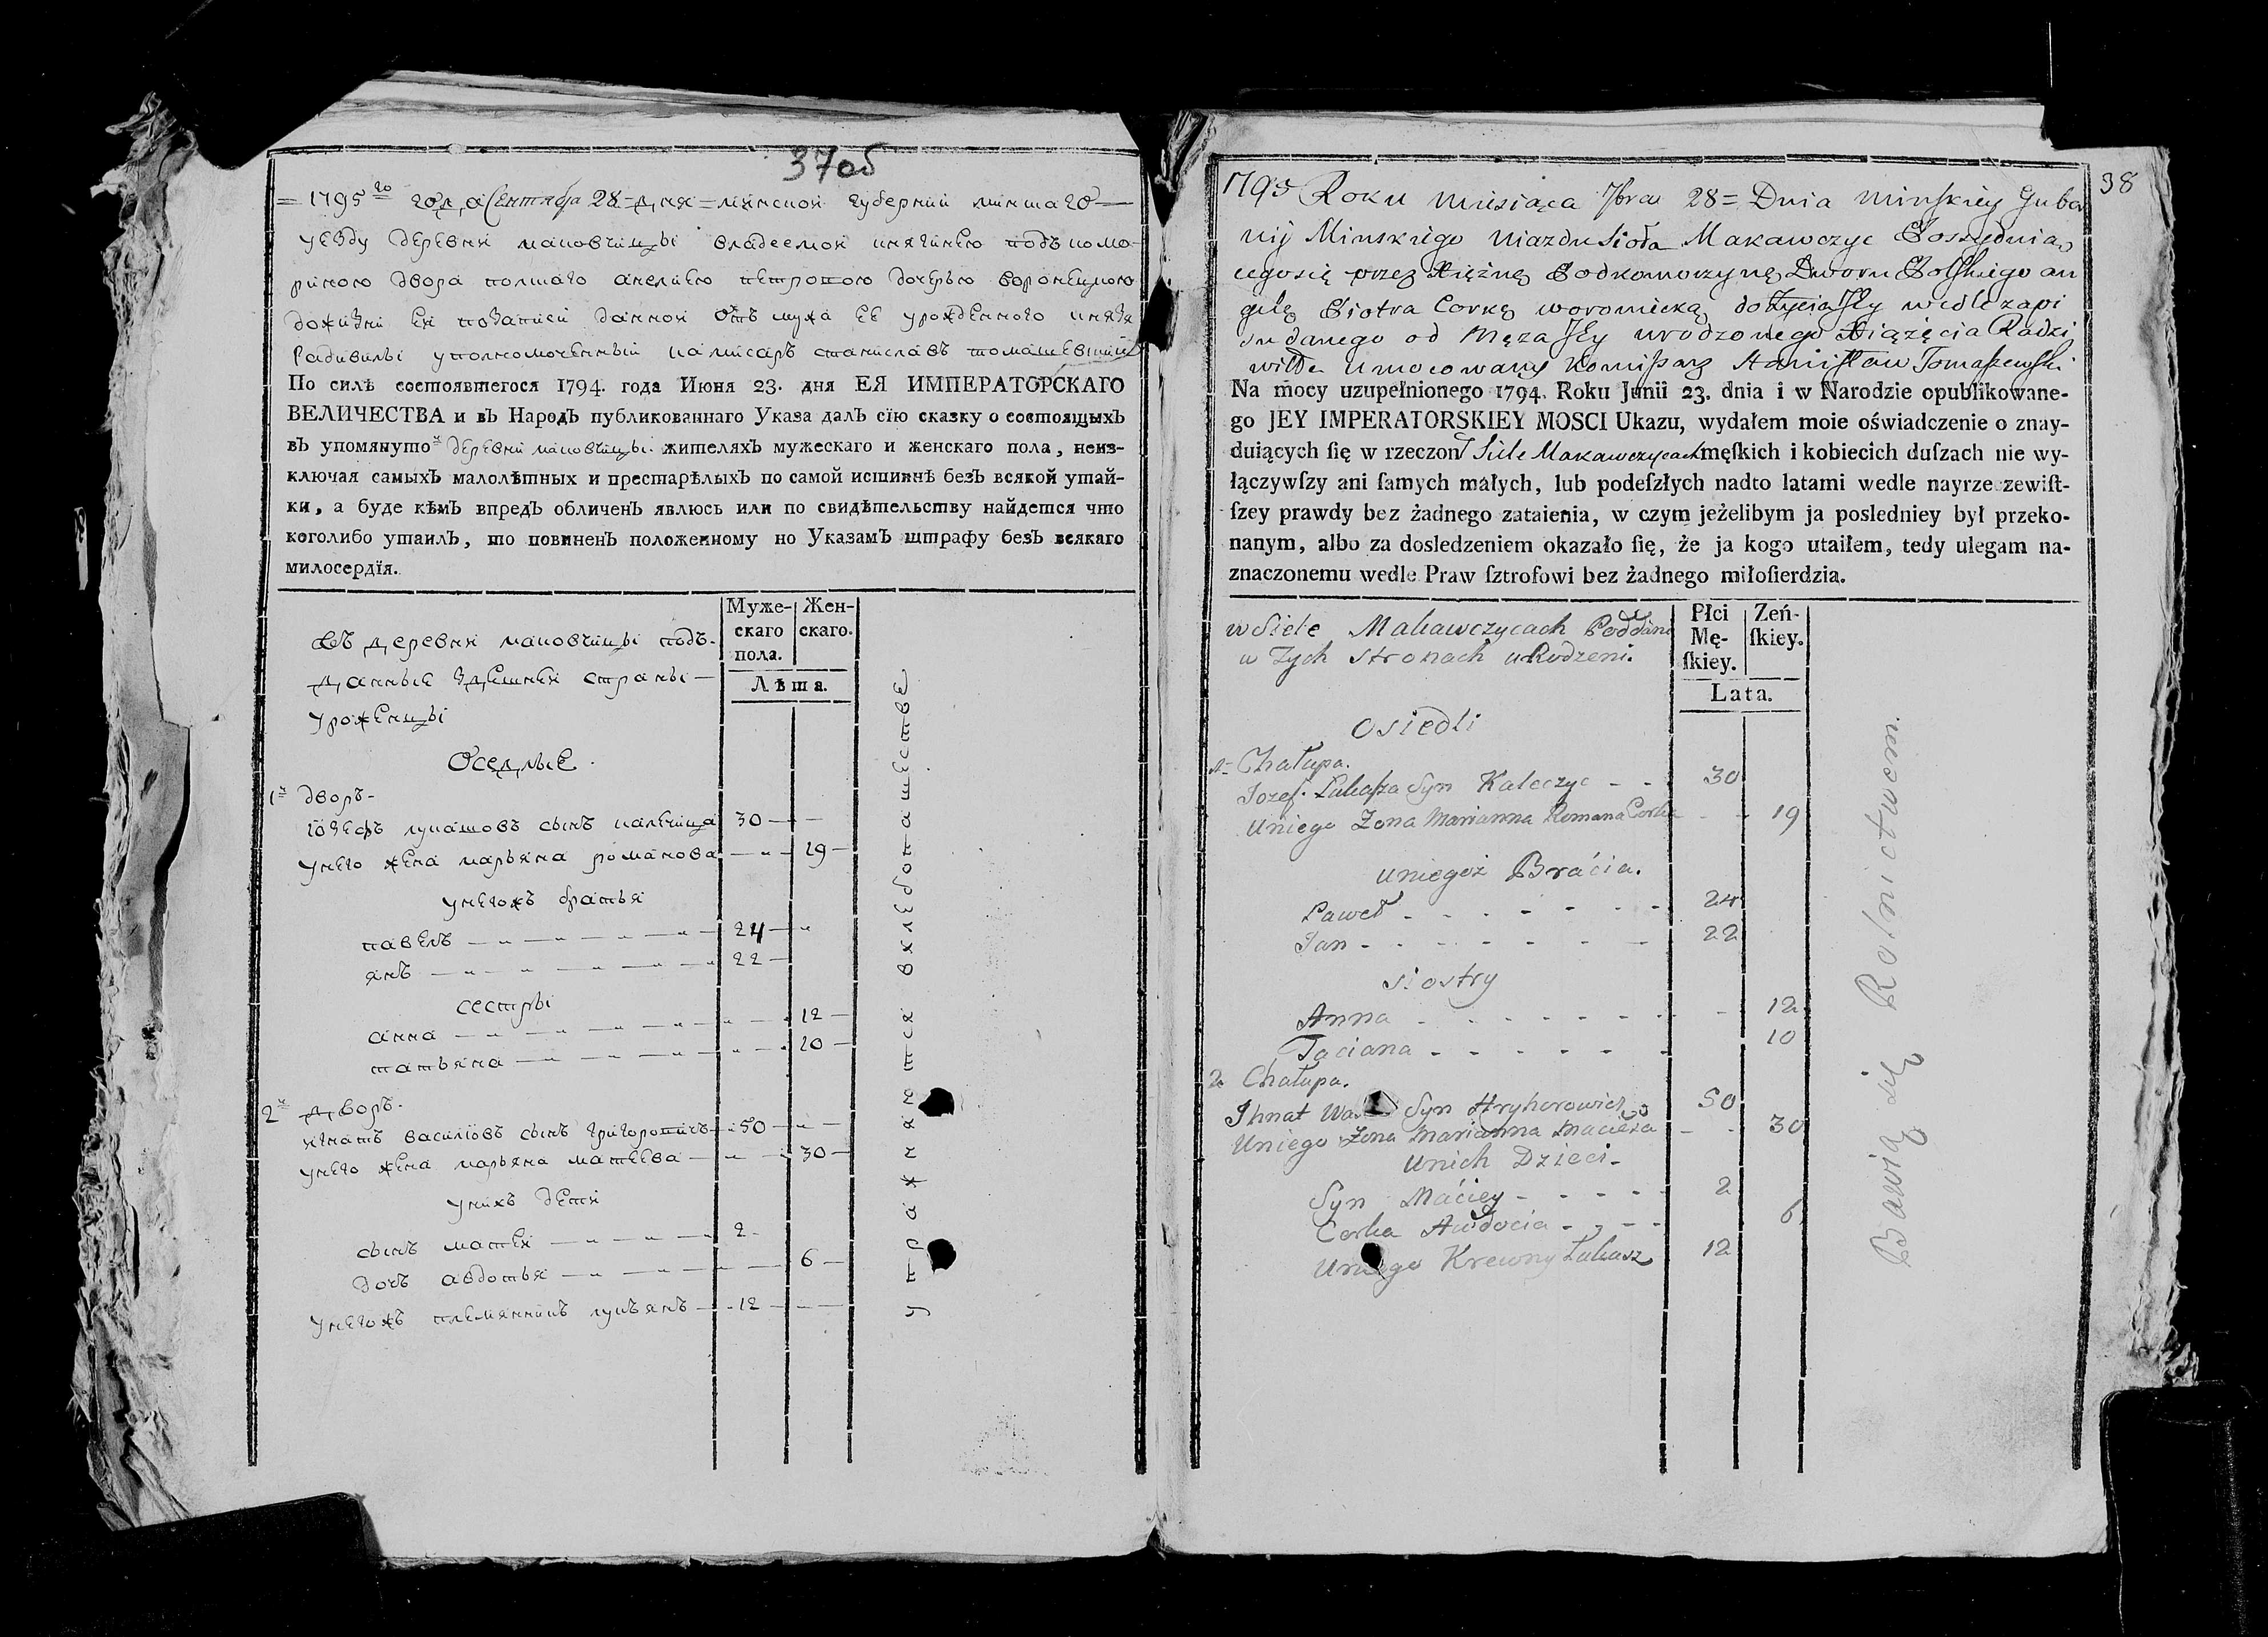 37об
= 1795го года Сентября 28 = дня = минской губернии минскаго —
уезду деревни маковчицы владеемой княгинею подкомо-
риною двора полшаго анелиею петровою дочерью воронецкою
доживни ея по записи данной отъ мужа ее урожденного князя
Радивилы уполномоченный камисаръ станиславъ томашевский
По силѣ состоявшегося 1794. года Июня 23. дня ЕЯ ИМПЕРАТОРСКАГО
ВЕЛИЧЕСТВА и въ Народъ публикованнаго Указа далъ сїю сказку о состоящыхъ
въ упомянутой деревни маковчицы жителяхъ мужескаго и женскаго пола, неиз-
ключая самыхъ малолѣтныхъ и престарѣлыхъ по самой истиннѣ безъ всякой утай-
ки, а буде кѣмъ впредъ обличенъ явлюсь или по свидѣтельству найдется что
коголибо утаилъ, то повиненъ положенному но Указамъ штрафу безъ всякаго
милосердїя.
Муже-скаго пола.
Жен-скаго.
Лѣта.
въ деревни маковчицы подъ-
данные здешней страны —
уроженцы
Оседлые.
1й дворъ-
Iозефъ лукашовъ сынъ калечица 30 —
унего жена марьяна романова — 19 —
унегожъ братья
павелъ — 24 —
янъ — 22 —
сестры
анна — 12 —
татьяна — 10 —
2й дворъ.
игнатъ василiовъ сынъ григоровичъ — 50 —
унего жена марьяна матеева — 30 —
унихъ дети
сынъ матей — 2 -
дочь авдотья — 6 —
унегожъ племянникъ лукъянъ — 12 —
упражняются вхлебопашестве
38
1795 Roku Miesiąca 7bra 28 = Dnia Minskiey Guber
nij Minskiego Uiazdu Sioła Makawczyc Possydnia
cegosię przez Xiężnę Podkomorzynę Dworu Polskiego an
gelę Piotra Corkę woronicką do Życia Jey wedle zapi
su danego od Męża Jey urodzonego Xiążęcia Radzi
wiłła umocowany Komissarz Stanisław Tomaszewski
Na mocy uzupełnionego 1794. Roku Junii 23. dnia i w Narodzie opublikowane-
go JEY IMPERATORSKIEY MOSCI Ukazu, wydałem moie oświadczenie o znay-
duiących ſię w rzeczon Siele Makawczycach męſkich i kobiecich duſzach nie wy-
łączywſzy ani ſamych małych, lub podeſzłych nadto latami wedle nayrzeczewiſt-
ſzey prawdy bez żadnego zataienia, w czym jeżelibym ja posledniey był przeko-
nanym, albo za dosledzeniem okazało ſię, że ja kogo utaiłem, tedy ulegam na-
znaczonemu wedle Praw ſztrofowi bez żadnego miłoſierdzia.
Płci Mę-ſkiey.
Zeń-ſkiey.
Lata.
w Siele Makawczycach Poddani
w Tych stronach uRodzeni.
Osiedli
1 Chałupa.
Jozef Łukasza Syn Kaleczyc - - 30
Uniego Żona Marianna Romana Corka - - 19
uniegoż Braćia.
Paweł - - - - - 24
Jan - - - - - 22
siostry
Anna - - - - - 12
Taciana - - - - - 10
2 Chałupa.
Ihnat Wa Syn Hryhorowicz 50
Uniego Żona Marianna Macieja - - 30
Unich Dzieci-
Syn Maćiey - - - - 2
Corka Awdocia - - - 6
Uniego Krewny Łukasz 12
Bawią się Rolnictwem.